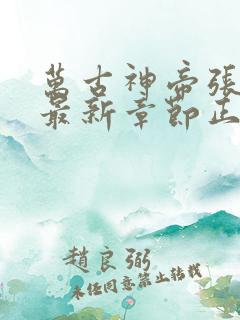 萬古神帝張
最新章節正
趙良弼
未經同意禁止轉載